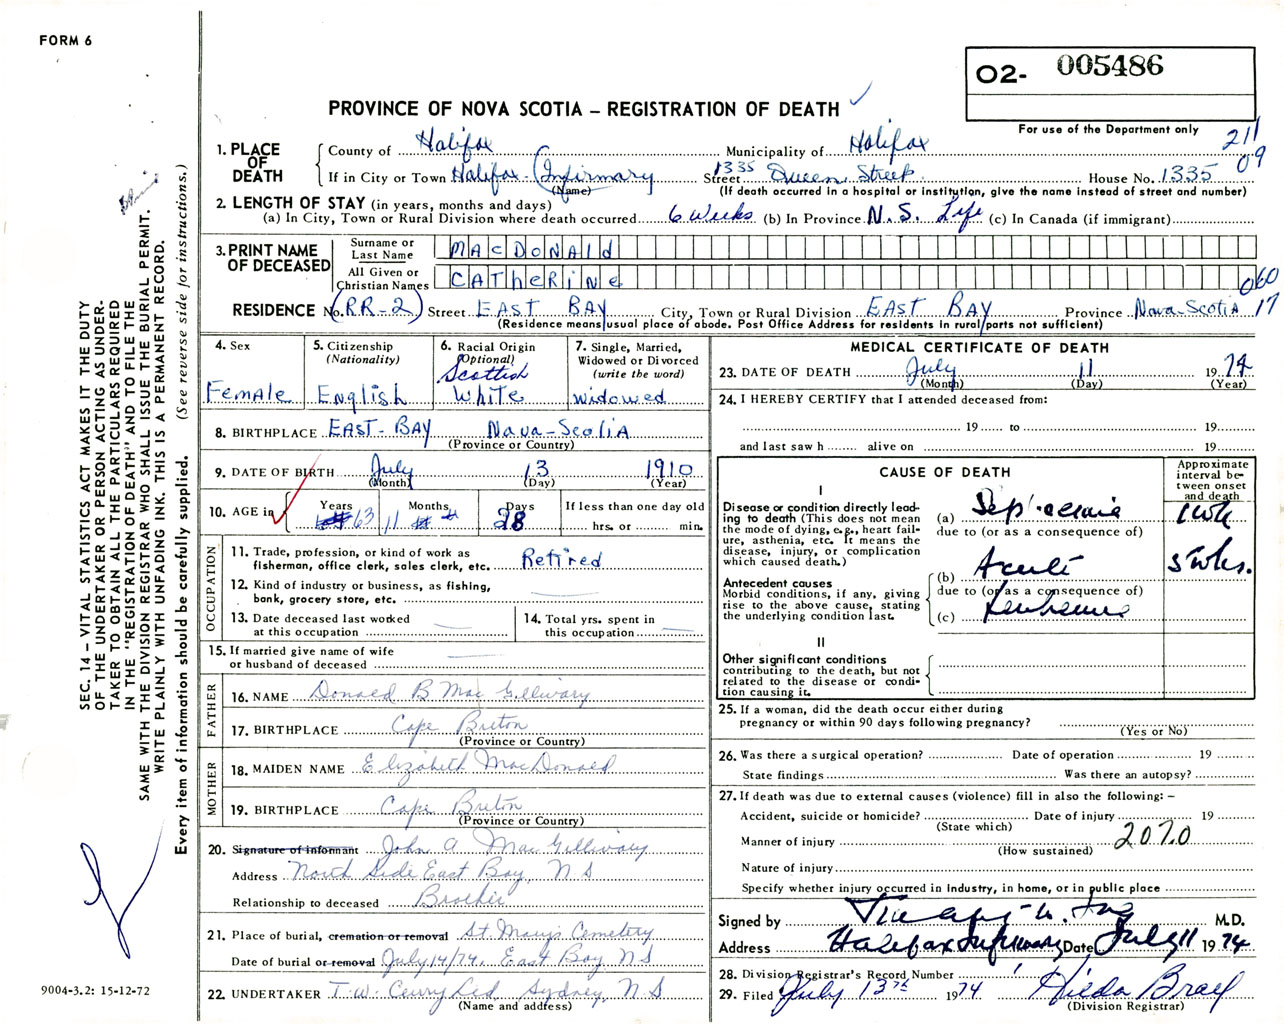 FORM 6
O2- 005486
PROVINCE OF NOVA SCOTIA – REGISTRATION OF DEATH
For use of the Department only
211
09
1. PLACE OF DEATH
County of Halifax Municipality of Halifax
If in City or Town Halifax - (Infirmary) 1335 Street Queen Street House No. 1335
(Name) (If death occurred in a hospital or institution, give the name instead of street and number)
2. LENGTH OF STAY (in years, months and days)
(a) In City, Town or Rural Division where death occurred 6 weeks (b) In Province N.S. Life (c) In Canada (if immigrant)
3. PRINT NAME OF DECEASED
Surname or Last Name MACDONALD
All Given or Christian Names CATHERINE
060
17
RESIDENCE No. (RR-2) Street EAST BAY City, Town or Rural Division EAST BAY Province Nova-Scotia
(Residence means usual place of abode. Post Office Address for residents in rural parts not sufficient)
4. Sex
Female
5. Citizenship
(Nationality)
English
6. Racial Origin
(Optional)
Scottish
White
7. Single, Married,
Widowed or Divorced
(write the word)
widowed
8. BIRTHPLACE EAST-BAY Nova-Scotia
(Province or Country)
9. DATE OF BIRTH July 13 1910
(Month) (Day) (Year)
10. AGE in Years Months Days If less than one day old
63 11 28 hrs. or min.
OCCUPATION
11. Trade, profession, or kind of work as
fisherman, office clerk, sales clerk, etc. Retired
12. Kind of industry or business, as fishing,
bank, grocery store, etc.
13. Date deceased last worked
at this occupation
14. Total yrs. spent in
this occupation
15. If married give name of wife
or husband of deceased
FATHER
16. NAME Donald B Mac Gillivary
17. BIRTHPLACE Cape Breton
(Province or Country)
MOTHER
18. MAIDEN NAME Elizabeth MacDonald
19. BIRTHPLACE Cape Breton
(Province or Country)
20. Signature of informant John A Mac Gillivary
Address North Side East Bay, N S
Relationship to deceased Brother
21. Place of burial, cremation or removal St. Mary's Cemetery
Date of burial or removal July 14/74. East Bay, N S
22. UNDERTAKER T.W. Curry Ltd Sydney, N S
(Name and address)
MEDICAL CERTIFICATE OF DEATH
23. DATE OF DEATH July 11 1974
(Month) (Day) (Year)
24. I HEREBY CERTIFY that I attended deceased from:
19 to 19
and last saw h alive on 19
CAUSE OF DEATH
Approximate
interval be-
tween onset
and death
I
Disease or condition directly lead-
ing to death (This does not mean
the mode of dying, e.g., heart fail-
ure, asthenia, etc. It means the
disease, injury, or complication
which caused death.)
(a) Septicemia 1 wk
due to (or as a consequence of)
Antecedent causes
Morbid conditions, if any, giving
rise to the above cause, stating
the underlying condition last.
(b) Acute 5 wks.
due to (or as a consequence of)
(c) Leukemia
II
Other significant conditions
contributing to the death, but not
related to the disease or condi-
tion causing it.
25. If a woman, did the death occur either during
pregnancy or within 90 days following pregnancy?
(Yes or No)
26. Was there a surgical operation? Date of operation 19
State findings Was there an autopsy?
27. If death was due to external causes (violence) fill in also the following: –
Accident, suicide or homicide? Date of injury 19
(State which)
Manner of injury 207.0
(How sustained)
Nature of injury
Specify whether injury occurred in industry, in home, or in public place
Signed by M.D.
Address Halifax Infirmary Date July 11 1974
28. Division Registrar's Record Number
29. Filed July 13th 1974 Hilda Bray
(Division Registrar)
SEC. 14 – VITAL STATISTICS ACT MAKES IT THE DUTY
OF THE UNDERTAKER OR PERSON ACTING AS UNDER-
TAKER TO OBTAIN ALL THE PARTICULARS REQUIRED
IN THE "REGISTRATION OF DEATH" AND TO FILE THE
SAME WITH THE DIVISION REGISTRAR WHO SHALL ISSUE THE BURIAL PERMIT.
WRITE PLAINLY WITH UNFADING INK. THIS IS A PERMANENT RECORD.
Every item of information should be carefully supplied. (See reverse side for instructions.)
9004-3.2: 15-12-72